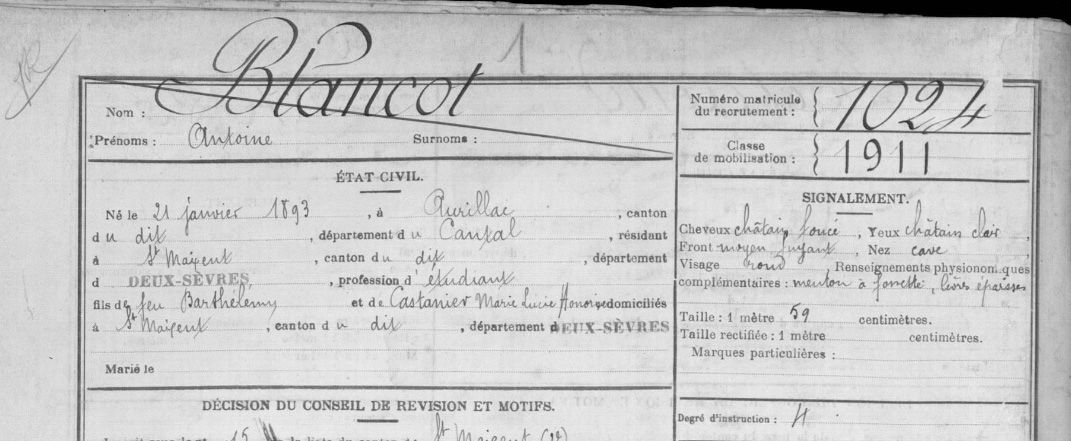 1
Blancot
Nom :
Prénoms : Antoine Surnoms :
Numéro matricule du recrutement : 1024
Classe de mobilisation : 1911
ÉTAT CIVIL.
Né le 21 janvier 1893, à Aurillac, canton
du dit, département du Cantal, résidant
à St Maixent, canton du dit, département
d DEUX-SÈVRES, profession d'étudiant
fils de feu Barthélemy et de Castanier Marie Lucie domiciliés
à St Maixent, canton du dit, département d DEUX-SÈVRES
Marié le
DÉCISION DU CONSEIL DE REVISION ET MOTIFS.
15 la liste du canton de St Maixent
SIGNALEMENT.
Cheveux châtain foncé, Yeux châtain clair,
Front moyen fuyant, Nez cave
Visage rond, Renseignements physionomiques
complémentaires : menton à fossette, lèvres épaisses
Taille : 1 mètre 59 centimètres.
Taille rectifiée : 1 mètre centimètres.
Marques particulières :
Degré d'instruction : 4